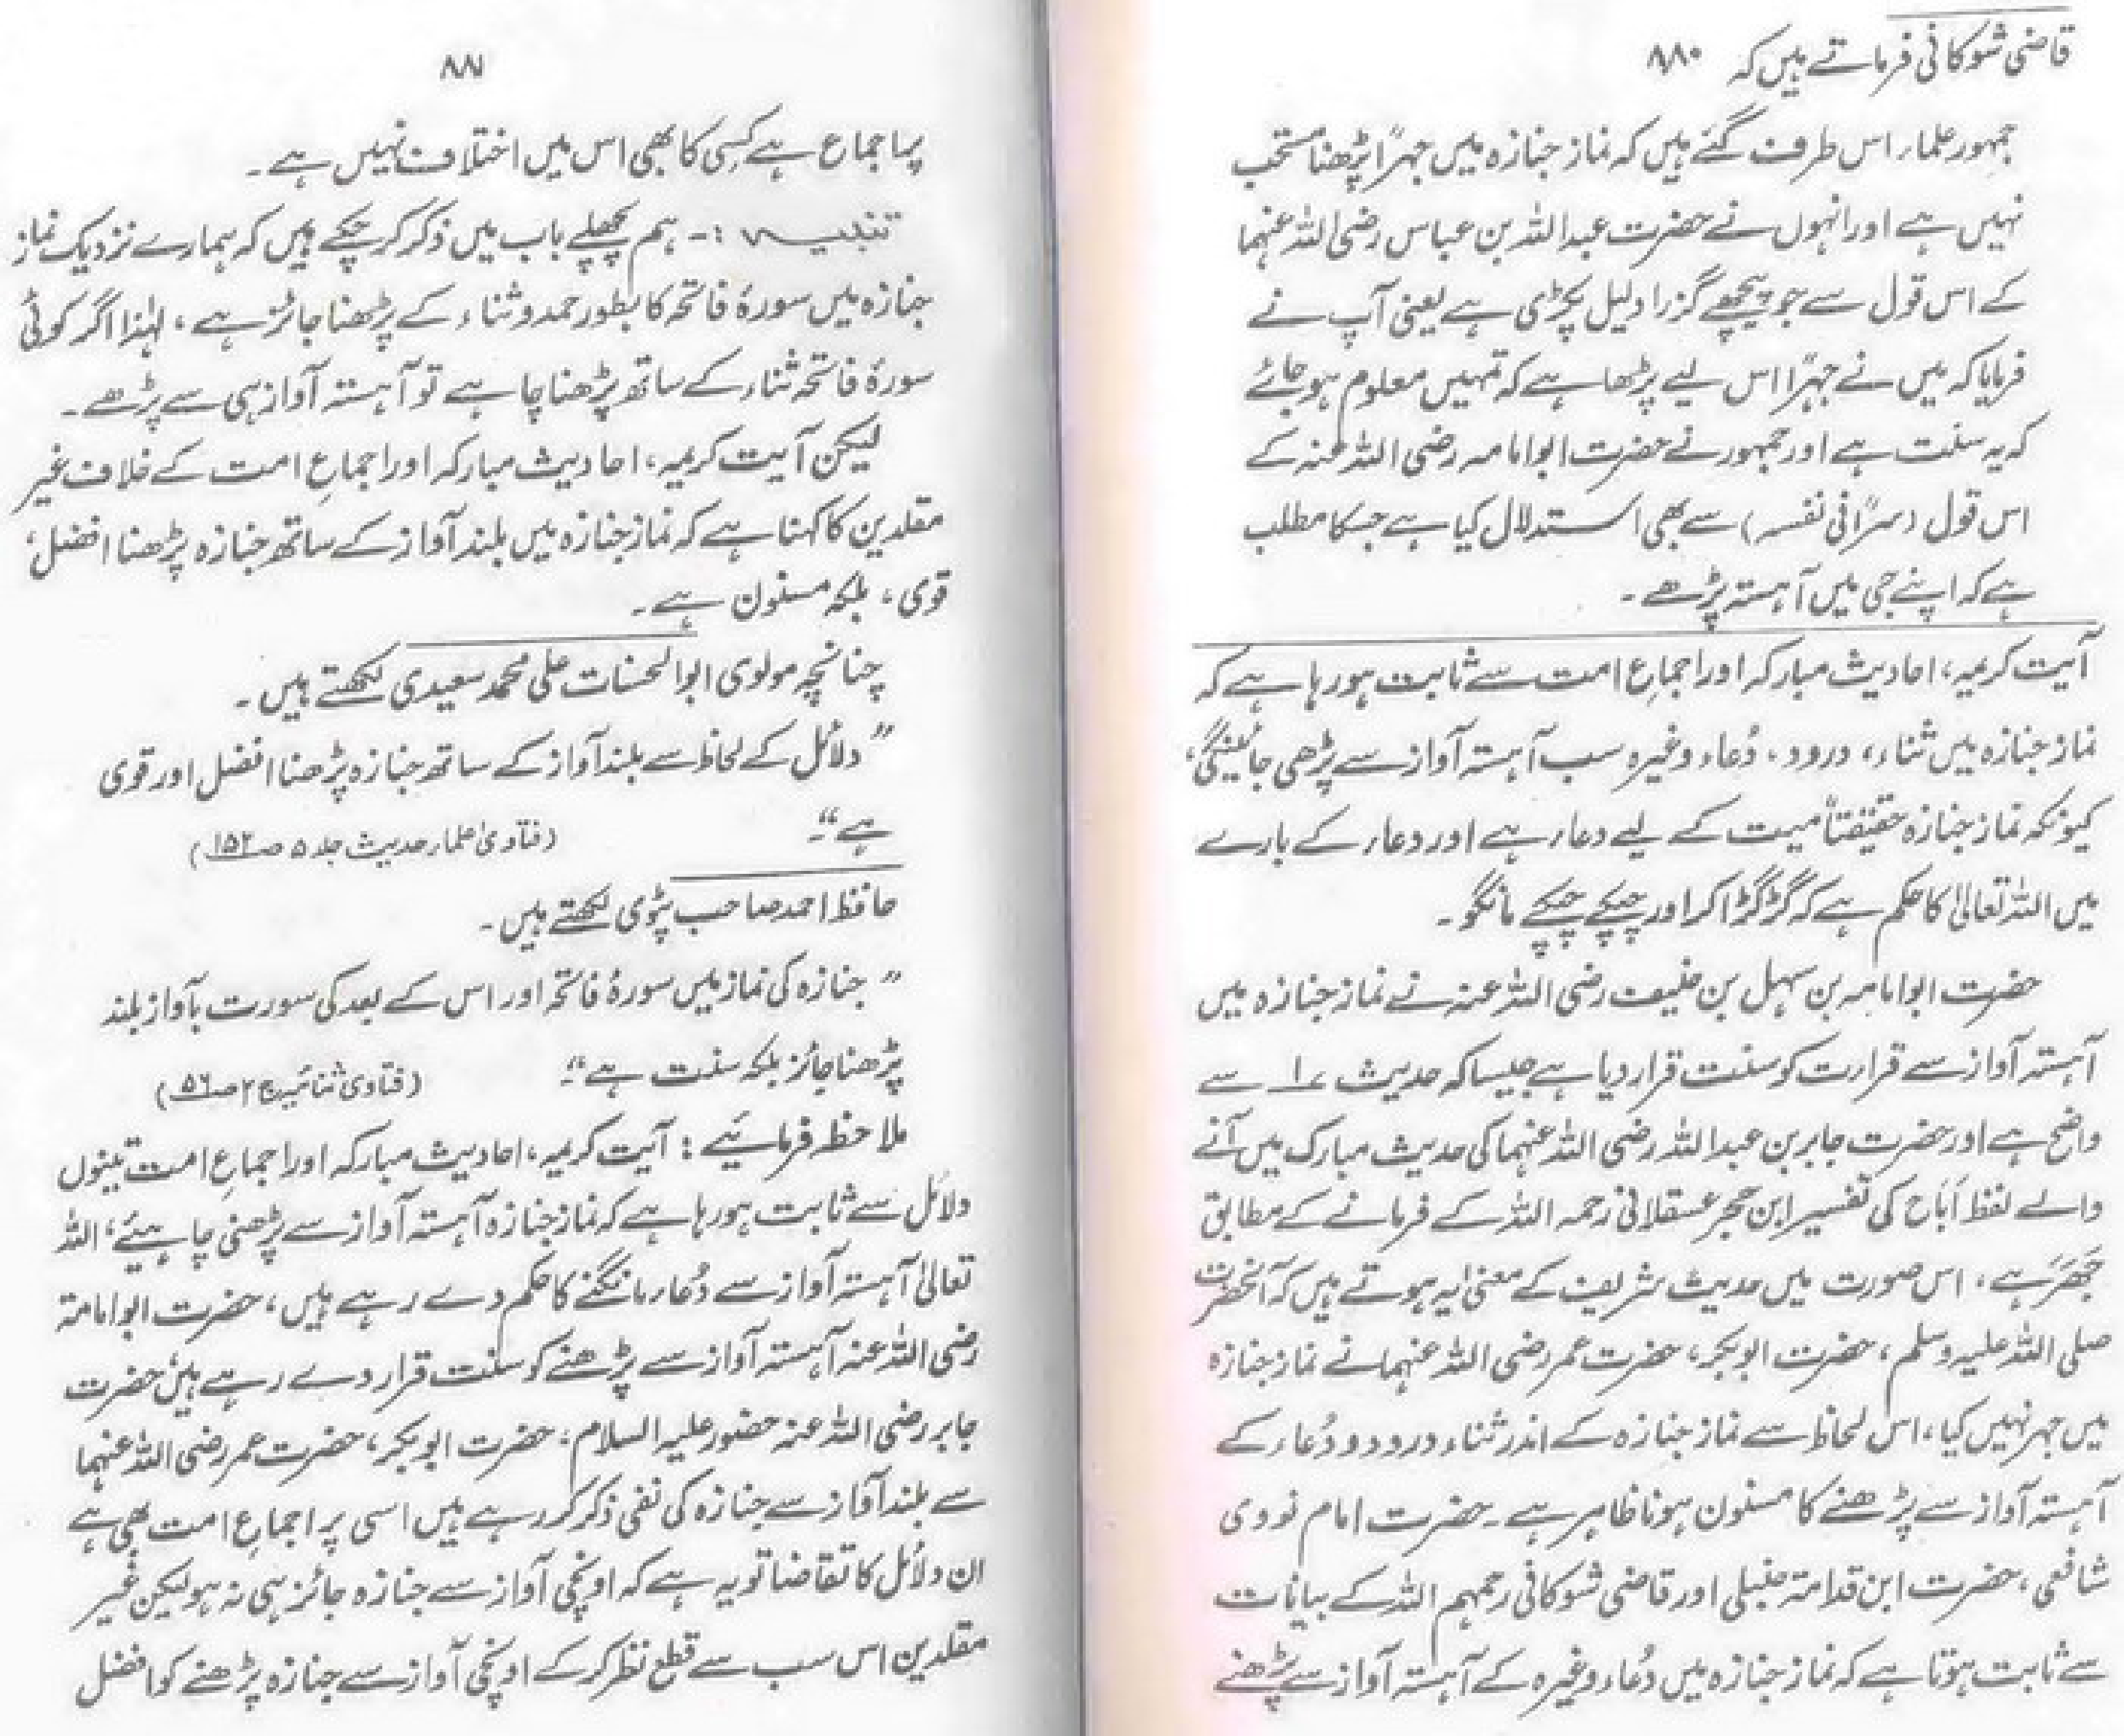 قاضی شوکانی فرماتے ہیں کہ ۸۸۰
جمہور علماء اس طرف گئے ہیں کہ نماز جنازہ میں جہراً پڑھنا مستحب
نہیں ہے اور انہوں نے حضرت عبداللہ بن عباس رضی اللہ عنہما
کے اس قول سے جو پیچھے گزرا دلیل پکڑی ہے یعنی آپ نے
فرمایا کہ میں نے جہراً اس لیے پڑھا ہے کہ تمہیں معلوم ہو جائے
کہ یہ سنت ہے اور جمہور نے حضرت ابو امامہ رضی اللہ عنہ کے
اس قول (سراً فی نفسہ) سے بھی استدلال کیا ہے جسکا مطلب
ہے کہ اپنے جی میں آہستہ پڑھے ۔
آیت کریمہ، احادیث مبارکہ اور اجماعِ امت سے ثابت ہو رہا ہے کہ
نماز جنازہ میں ثناء، درود، دُعاء وغیرہ سب آہستہ آواز سے پڑھی جائینگی،
کیونکہ نماز جنازہ حقیقتاً میت کے لیے دعاء ہے اور دعاء کے بارے
میں اللہ تعالیٰ کا حکم ہے کہ گڑگڑا کر اور چپکے چپکے مانگو ۔
حضرت ابو امامہ بن سہل بن حنیف رضی اللہ عنہ نے نماز جنازہ میں
آہستہ آواز سے قراءت کو سنت قرار دیا ہے جیسا کہ حدیث ۱ سے
واضح ہے اور حضرت جابر بن عبداللہ رضی اللہ عنہما کی حدیث مبارک میں آنے
والے لفظ اَبَاح کی تفسیر ابن حجر عسقلانی رحمہ اللہ کے فرمانے کے مطابق
جَھَرَ ہے، اس صورت میں حدیث شریف کے معنی یہ ہوتے ہیں کہ آنحضرت
صلی اللہ علیہ وسلم، حضرت ابوبکر، حضرت عمر رضی اللہ عنہما نے نماز جنازہ
میں جہر نہیں کیا، اس لحاظ سے نماز جنازہ کے اندر ثناء درود و دُعاء کے
آہستہ آواز سے پڑھنے کا مسنون ہونا ظاہر ہے ۔ حضرت امام نووی
شافعی، حضرت ابن قدامۃ حنبلی اور قاضی شوکانی رحمہم اللہ کے بیانات
سے ثابت ہوتا ہے کہ نماز جنازہ میں دُعاء وغیرہ کے آہستہ آواز سے پڑھنے
۸۸۱
پر اجماع ہے کسی کا بھی اس میں اختلاف نہیں ہے ۔
تنبیہ :- ہم پچھلے باب میں ذکر کر چکے ہیں کہ ہمارے نزدیک نماز
جنازہ میں سورۂ فاتحہ کا بطور حمد و ثناء کے پڑھنا جائز ہے، لہٰذا اگر کوئی
سورۂ فاتحہ ثناء کے ساتھ پڑھنا چاہے تو آہستہ آواز ہی سے پڑھے ۔
لیکن آیت کریمہ، احادیث مبارکہ اور اجماعِ امت کے خلاف غیر
مقلدین کا کہنا ہے کہ نماز جنازہ میں بلند آواز کے ساتھ جنازہ پڑھنا افضل،
قوی، بلکہ مسنون ہے ۔
چنانچہ مولوی ابوالحسنات علی محمد سعیدی لکھتے ہیں ۔
” دلائل کے لحاظ سے بلند آواز کے ساتھ جنازہ پڑھنا افضل اور قوی
ہے “ (فتاویٰ علماء حدیث جلد ۵ صـ۱۵۲)
حافظ احمد صاحب پٹوی لکھتے ہیں ۔
” جنازہ کی نماز میں سورۂ فاتحہ اور اس کے بعد کی سورت بآواز بلند
پڑھنا جائز بلکہ سنت ہے “ (فتاویٰ ثنائیہ ج ۲ صـ۵۶)
ملاحظہ فرمائیے : آیت کریمہ، احادیث مبارکہ اور اجماعِ امت تینوں
دلائل سے ثابت ہو رہا ہے کہ نماز جنازہ آہستہ آواز سے پڑھنی چاہیئے، اللہ
تعالیٰ آہستہ آواز سے دُعاء مانگنے کا حکم دے رہے ہیں، حضرت ابو امامۃ
رضی اللہ عنہ آہستہ آواز سے پڑھنے کو سنت قرار دے رہے ہیں، حضرت
جابر رضی اللہ عنہ حضور علیہ السلام، حضرت ابوبکر، حضرت عمر رضی اللہ عنہما
سے بلند آواز سے جنازہ کی نفی ذکر کر رہے ہیں اسی پر اجماعِ امت بھی ہے
ان دلائل کا تقاضا تو یہ ہے کہ اونچی آواز سے جنازہ جائز ہی نہ ہو لیکن غیر
مقلدین اس سب سے قطع نظر کر کے اونچی آواز سے جنازہ پڑھنے کو افضل